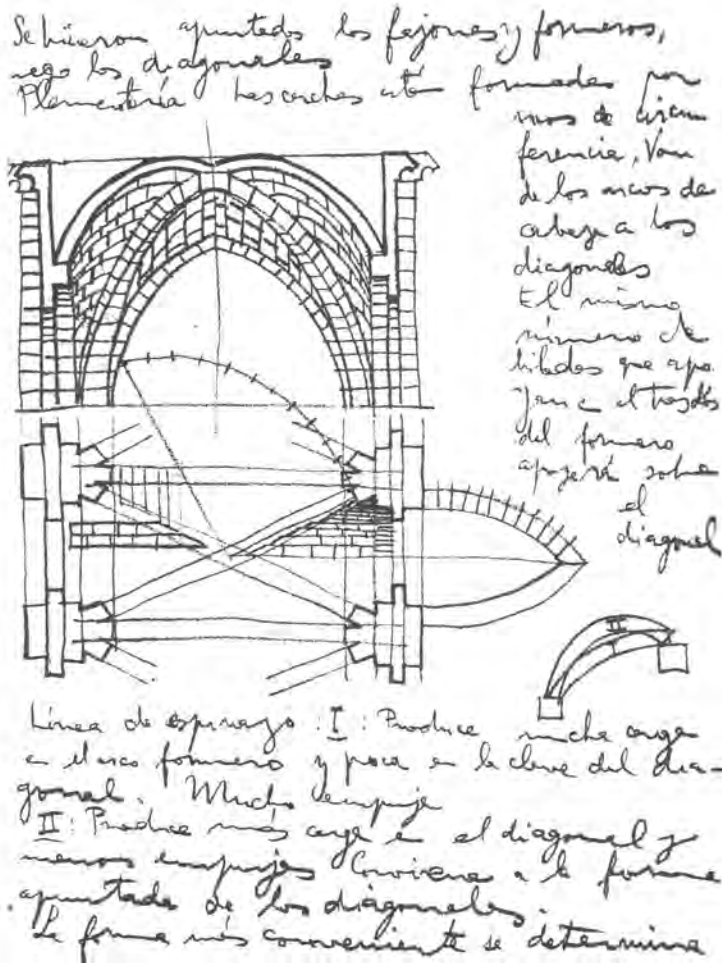 Se hicieron apuntados los fajones y formeros,
uego los diagonales
Plementería Las conchas están formadas por
arcos de circun
ferencia, Van
de los arcos de
cabeza a los
diagonales
El mismo
número de
hiladas que apo
yan en el trasdós
del formero
apoyará sobre
el
diagonal
II
Línea de espinazo: I: Produce mucha carga
en el arco formero y poca en la clave del dia-
gonal. Mucho empuje
II: Produce más carga en el diagonal y
menos empujes Conviene a la forma
apuntada de los diagonales.
La forma más conveniente se determina